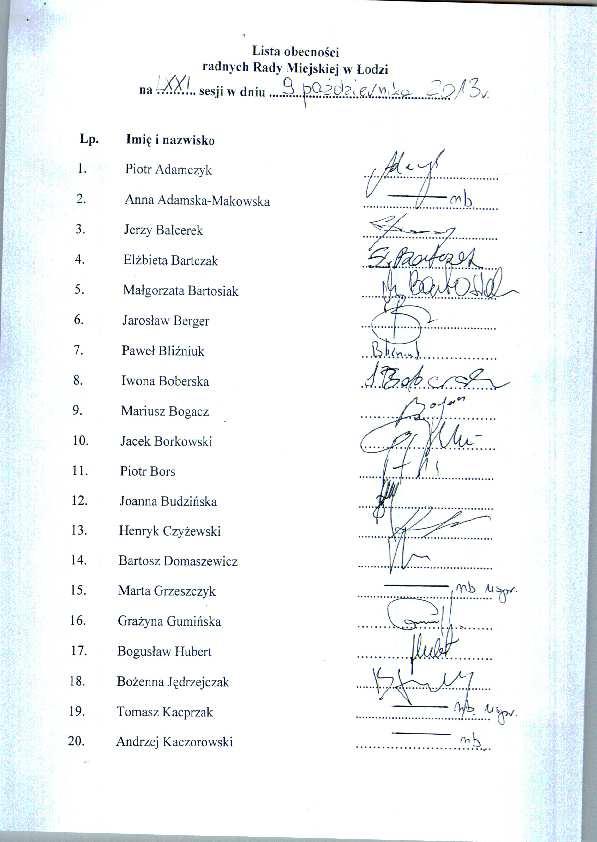 Lista obecności
radnych Rady Miejskiej w Łodzi
na LXXI sesji w dniu 9 października 2013 r.
Lp. Imię i nazwisko
1. Piotr Adamczyk
2. Anna Adamska-Makowska nb
3. Jerzy Balcerek
4. Elżbieta Bartczak E. Bartczak
5. Małgorzata Bartosiak M. Bartosiak
6. Jarosław Berger
7. Paweł Bliźniuk
8. Iwona Boberska I. Boberska
9. Mariusz Bogacz
10. Jacek Borkowski
11. Piotr Bors
12. Joanna Budzińska
13. Henryk Czyżewski
14. Bartosz Domaszewicz
15. Marta Grzeszczyk nb uspr.
16. Grażyna Gumińska
17. Bogusław Hubert Hubert
18. Bożenna Jędrzejczak
19. Tomasz Kacprzak nb uspr.
20. Andrzej Kaczorowski nb